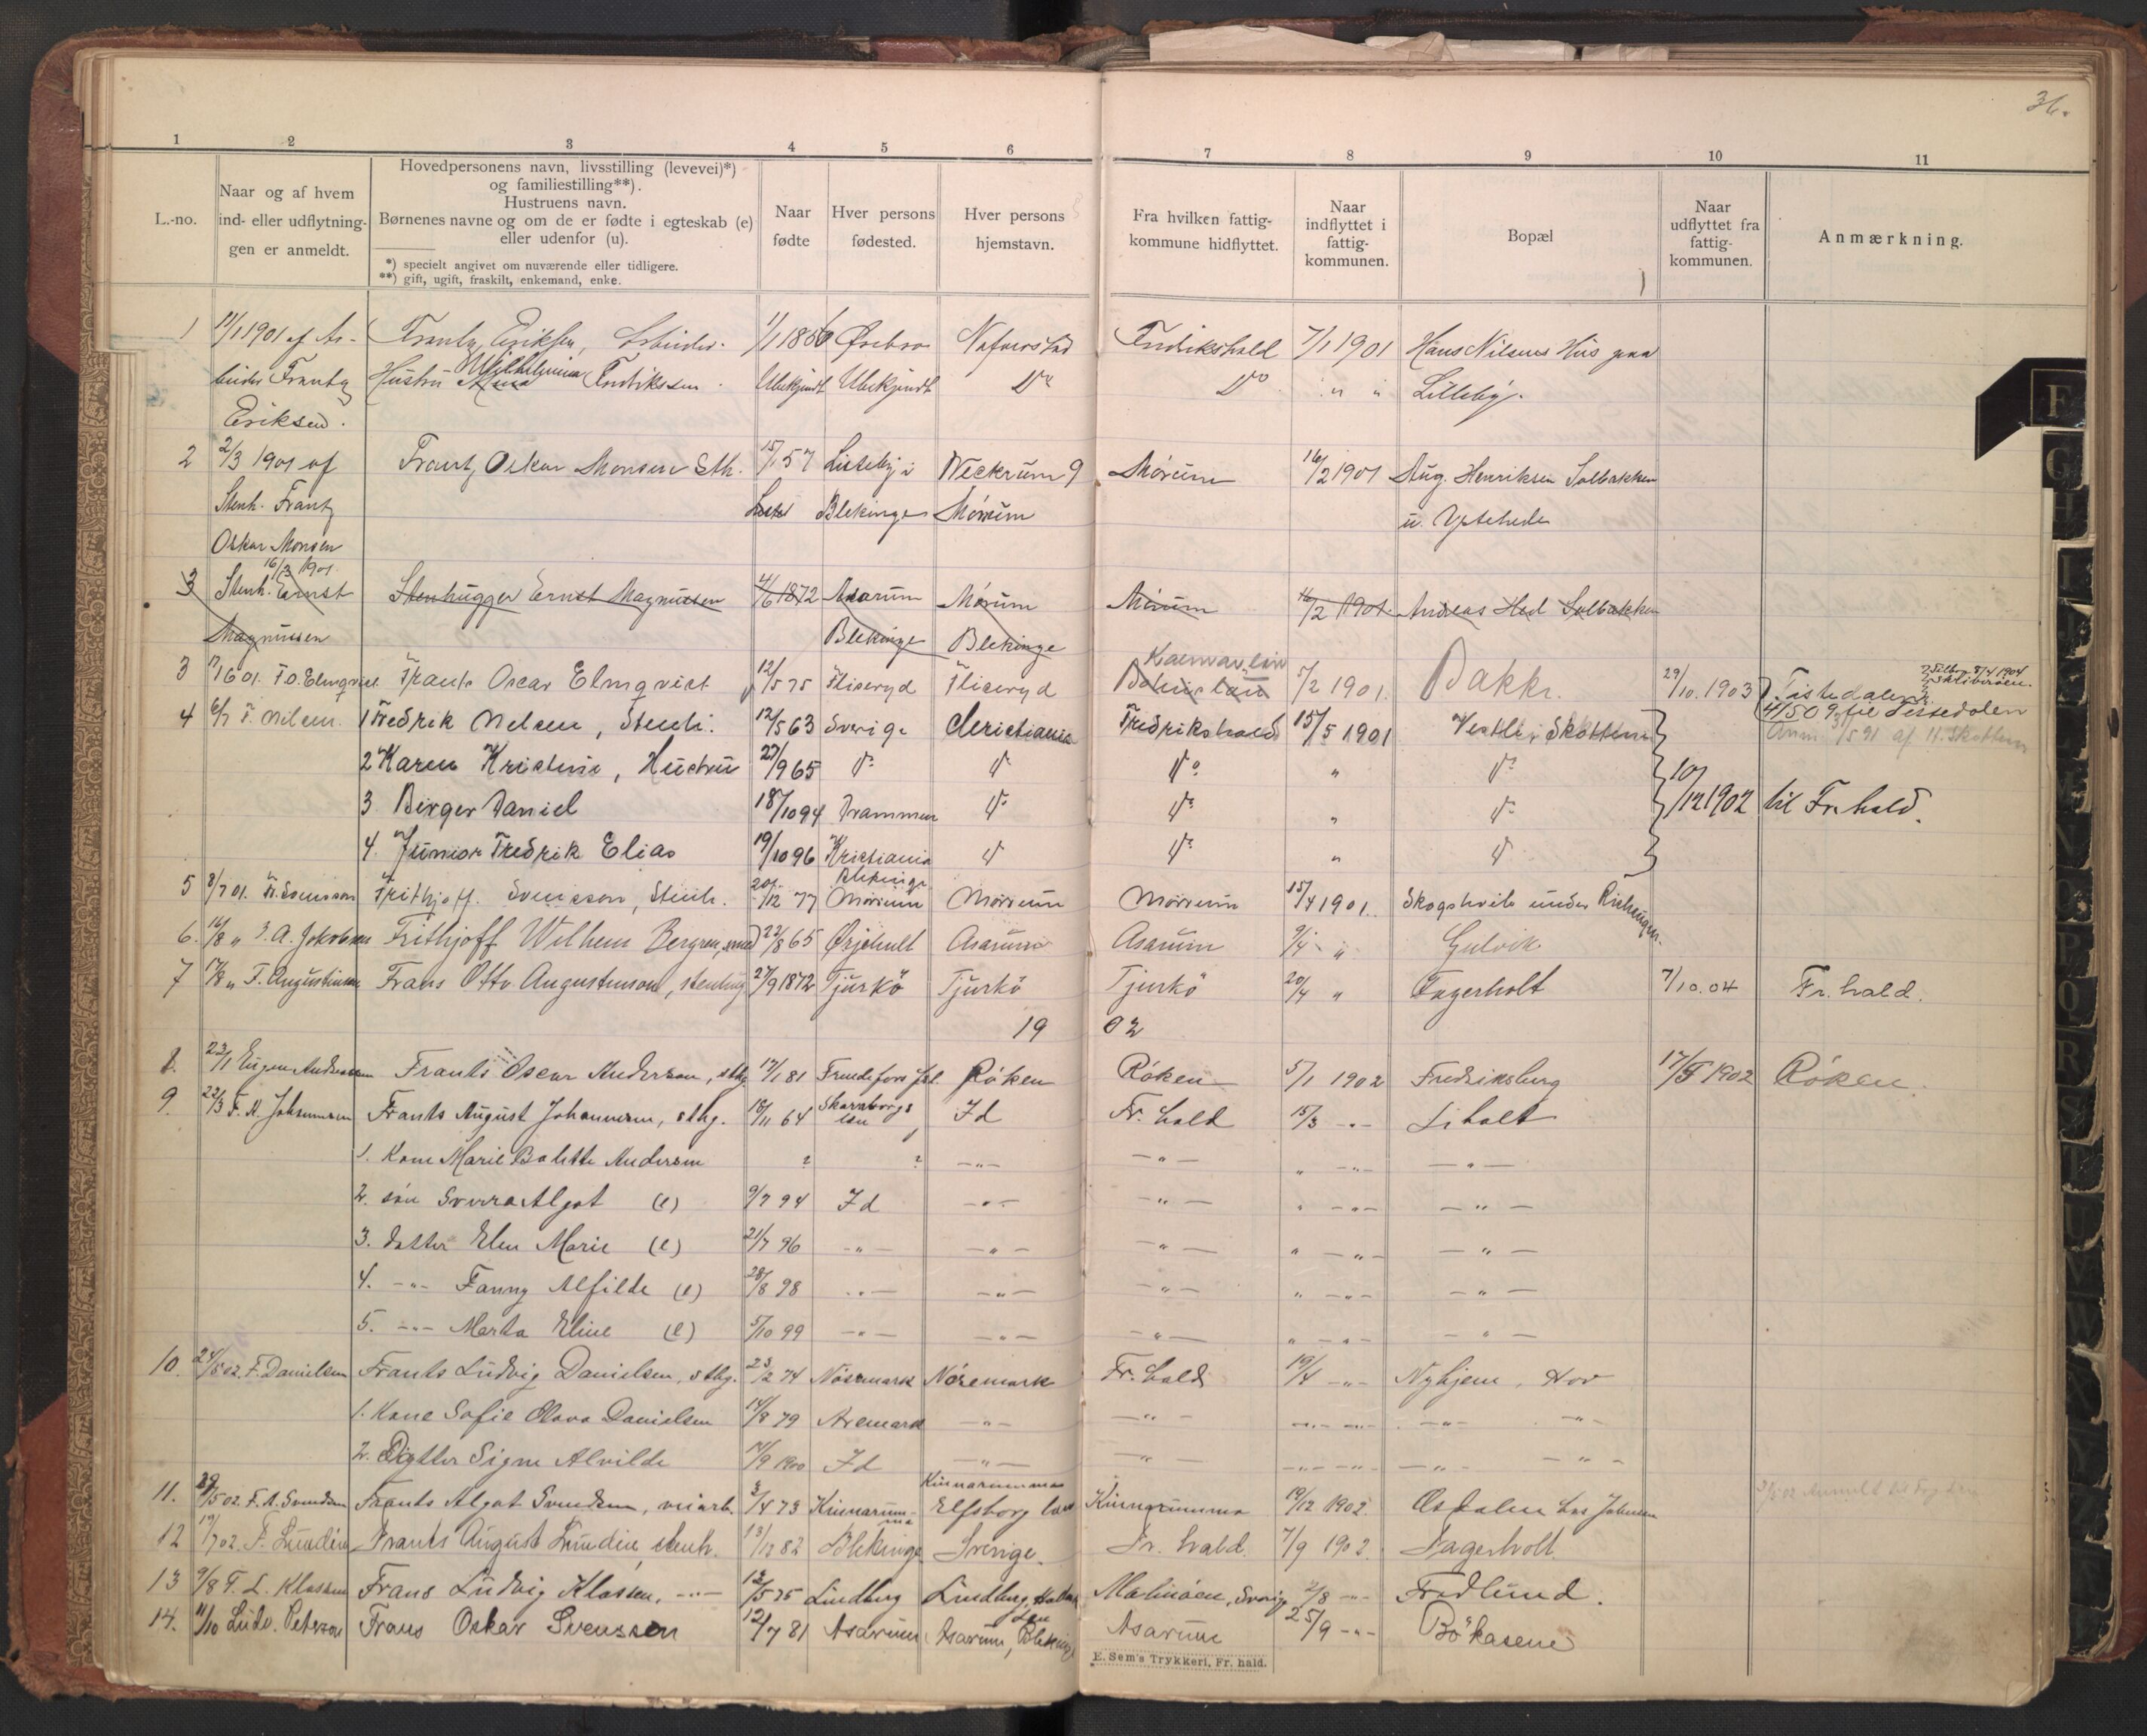 36.
1 2 3 4 5 6 7 8 9 10 11
L.-no.
Naar og af hvem
ind- eller udflytnin-
gen er anmeldt.
Hovedpersonens navn, livsstilling (levevei)*)
og familiestilling**).
Hustruens navn.
Børnenes navne og om de er fødte i egteskab (e)
eller udenfor (u).
*) specielt angivet om nuværende eller tidligere.
**) gift, ugift, fraskilt, enkemand, enke.
Naar
fødte
Hver persons
fødested.
Hver persons
hjemstavn.
Fra hvilken fattig-
kommune hidflyttet.
Naar
indflyttet i
fattig-
kommunen.
Bopæl
Naar
udflyttet fra
fattig-
kommunen.
Anmærkning.
1 11/1 1901 af Ar- Frantz Eriksen, Arbeider. 1/1 1856 Örebro Nafverstad Fredrikshald 7/1 1901 Hans Nilsens Hus paa
beider Frantz Hustru Wilhelmina Fredriksen. Ubekjendt Ubekjendt Do Do " " Lilleby.
Eriksen.
2 2/3 1901 af Frantz Oskar Monsen Sth. 15/1 57 Listeby i Mörum 16/2 1901 Aug. Henriksen Solbakken
Stenh. Frantz Blekinge Mörrum u. Ystehede
Oskar Monsen
16/3 1901.
3 Stenh. Ernst Stenhugger Ernst Magnussen 4/6 1872 Asarum Mörum Mörum 16/2 1901. Andreas Hed Solbakken
Magnussen Blekinge Blekinge
3 F.O. Elmqvist Frants Oscar Elmqvist 12/5 75 Fliseryd Fliseryd Kalmar län 5/2 1901. Bakke. 29/10. 1903 Tistedalen
4 6/7 F. Nilsen. 1 Fredrik Nelsen, Stenh. 12/5 63 Sverige Christiania Fredrikshald 15/5 1901 Vestle i Skotten 4/5 09 til Tistedalen
2 Karen Kristine, Hustru 27/9 65 Do Do Do " Do
3 Birger Daniel 18/10 94 Drammen Do Do " Do 10/12 1902 til Fr.hald.
4. Junior Fredrik Elias 19/10 96 Kristiania Do Do " Do
5 8/7 01. F. Svensson Frithjoff. Svensson, Stenh. 20/12 77 Blekinge Mörrum Mörrum Mörrum 15/4 1901. Skogshvile under
6. 16/8 " J. A. Jakobsen Frithjoff Wilhem Bergren, 22/8 65 Örjehult Asarum Asarum 9/4 " Gulvik
7 17/8 " F. Augustinson Frans Otto Augustinson, stenhug 27/9 1872 Tjurkö Tjurkö Tjurkö 20/4 " Fagerholt 7/10.04 Fr.hald.
19 02
8. 23/1 Eugen Anderssen Frants Oscar Anderson, sthg. 17/1 81 Röken Röken 5/1 1902 Fredriksberg 17/5 1902 Röken.
9. 22/3 F. A. Johannesen Frants August Johannesen, sthg. 15/11 64 Skaraborgs län Id Fr. hald 15/3 -"- Liholt
1. Kone Marie Bolette Andersen ? ? -"- -"- " -"- -"-
2. sön Sverre Algot (e) 9/7 94 Id -"- -"- " -"- -"-
3. datter Elen Marie (e) 21/7 96 -"- -"- -"- " -"- -"-
4. -"- Fanny Alfilde (e) 28/8 98 -"- -"- -"- " -"- -"-
5. -"- Marta Eline (e) 5/10 99 -"- -"- -"- " -"- -"-
10. 24/5 02. F. Danielsen Frants Ludvig Danielsen, sthg. 23/2 74 Nösemark Nösemark Fr. hald 19/4 -"- Nyhjem, Hov
1. Kone Sofie Olava Danielsen 14/8 79 Aremark -"- -"- -"- -"- -"- -"-
2. Datter Signe Alvilde 14/9 1900 Id -"- -"- -"- -"- -"- -"-
11. 28/5 02. F. A. Svendsen Frants Algot Svendsen, veiarb. 3/4 73 Kinnarumma Kinnarumma Elfsborg län Kinnarumma 19/12 1902. Osdalen hos Johnsen
12 19/7 02. F. Lundin Frants August Lundin, stenh. 13/12 82 Blekinge Sverige. Fr. hald. 7/9 1902. Fagerholt
13 9/8 F. L. Klassen Frans Ludvig Klassen, -"- 12/5 75 Lindberg Lindberg, Hallands Län Malmöen, Sverige 2/8 -"- Fredlund.
14. 11/10 Ludv. Peterson Frans Oskar Svensson 12/7 81 Asarum Asarum, Blekinge Asarum 25/9 -"- Bökasene
E. Sem's Trykkeri, Fr. hald.
F
G
H
I